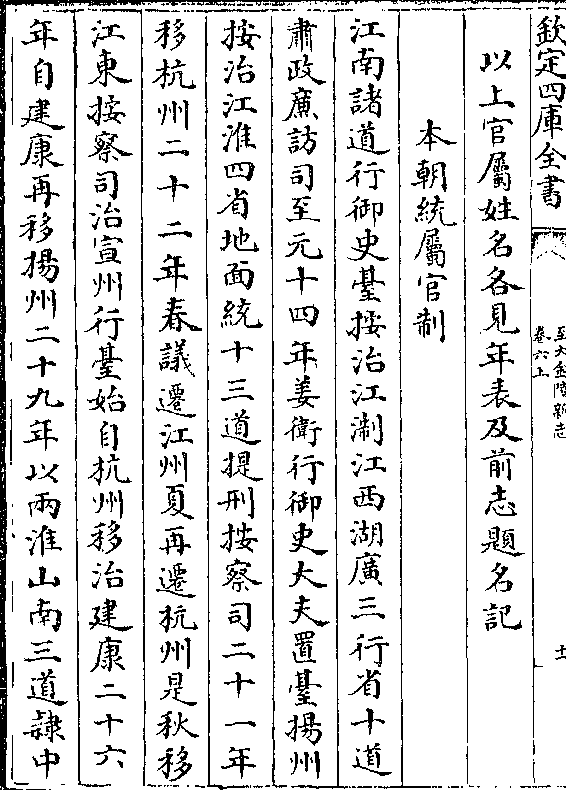 欽定四庫全書
至大金陵新志
卷六上
十
以上官屬姓名各見年表及前志題名記
本朝統屬官制
江南諸道行御史臺按治江淛江西湖廣三行省十道
肅政廉訪司至元十四年姜衛行御史大夫置臺揚州
按治江淮四省地面統十三道提刑按察司二十一年
移杭州二十二年春議遷江州夏再遷杭州是秋移
江東按察司治宣州行臺始自杭州移治建康二十六
年自建康再移揚州二十九年以兩淮山南三道隸中